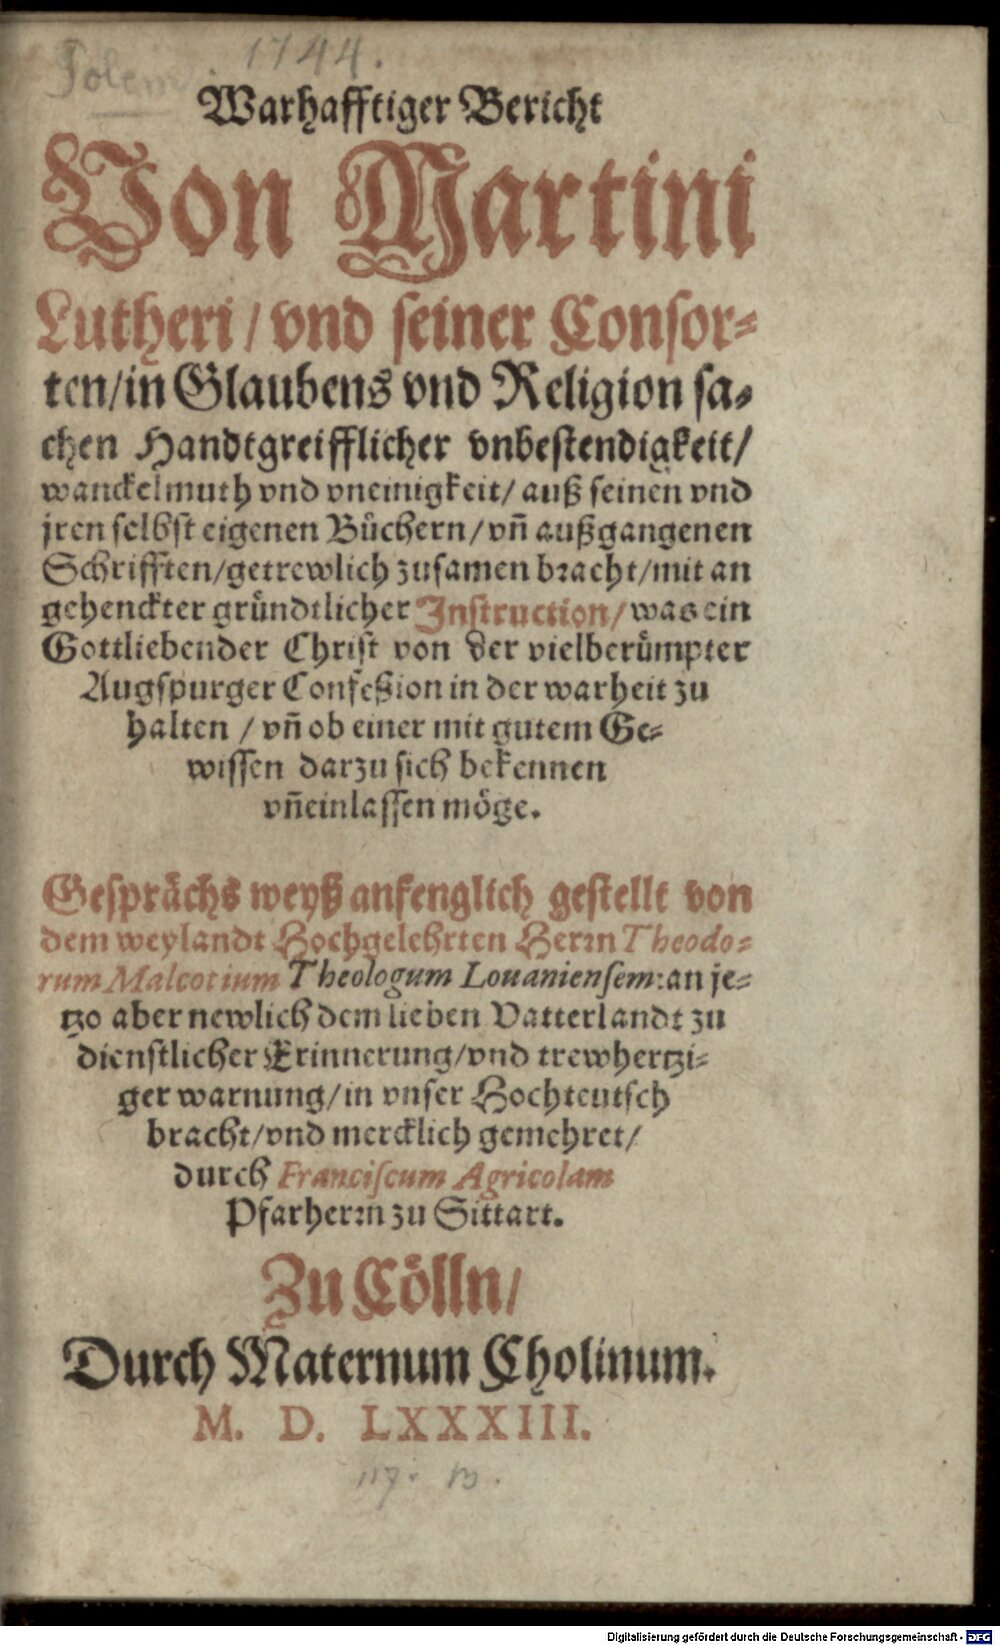 Polem. 1744.
Warhafftiger Bericht
Von Martini
Lutheri / vnd seiner Consor-
ten/in Glaubens vnd Religion sa-
chen Handtgreifflicher vnbestendigkeit/
wanckelmuth vnd vneinigkeit/ auß seinen vnd
jren selbst eigenen Büchern/vñ außgangenen
Schrifften/getrewlich zusamen bracht/mit an
gehenckter gründtlicher Instruction/ was ein
Gottliebender Christ von der vielberümpter
Augspurger Confeßion in der warheit zu
halten / vñ ob einer mit gutem Ge-
wissen darzu sich bekennen
vñeinlassen möge.
Gesprächs weyß anfenglich gestellt von
dem weylandt Hochgelehrten Herrn Theodo-
rum Malcotium Theologum Louaniensem: an je-
tzo aber newlich dem lieben Vatterlandt zu
dienstlicher Erinnerung/vnd trewhertzi-
ger warnung/in vnser Hochteutsch
bracht/vnd mercklich gemehret/
durch Franciscum Agricolam
Pfarherrn zu Sittart.
Zu Cölln/
Durch Maternum Cholinum.
M. D. LXXXIII.
Digitalisierung gefördert durch die Deutsche Forschungsgemeinschaft - DFG